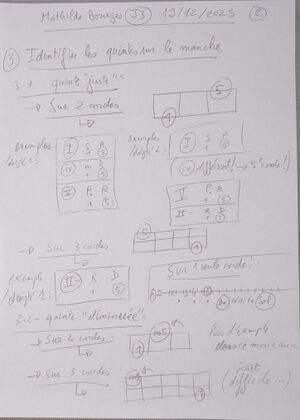 Mathilde Bourges (J3) 19/12/2025 (2)
(3) Identifier les quintes sur le manche
3.1. quinte "juste" =
→ Sur 2 cordes
5
1
exemples doigté 1:
I S P
1 (5)
(IV) m
1 (5)
V P. R
1 (5)
exemples doigté 2:
I S P
1 (5)
(IV) différent! → 5e corde!
V P. R
1 (5)
II- R D
1 (5)
→ Sur 3 cordes
5
1
exemple doigté 1:
II- R D
1 (5)
Sur 1 seule corde!
Do Sol
3.2 - quinte "diminuée" =
→ Sur 2 cordes:
b5
1
Pas d'exemple dans ce morceau
→ Sur 3 cordes
b5
1
(difficile...)